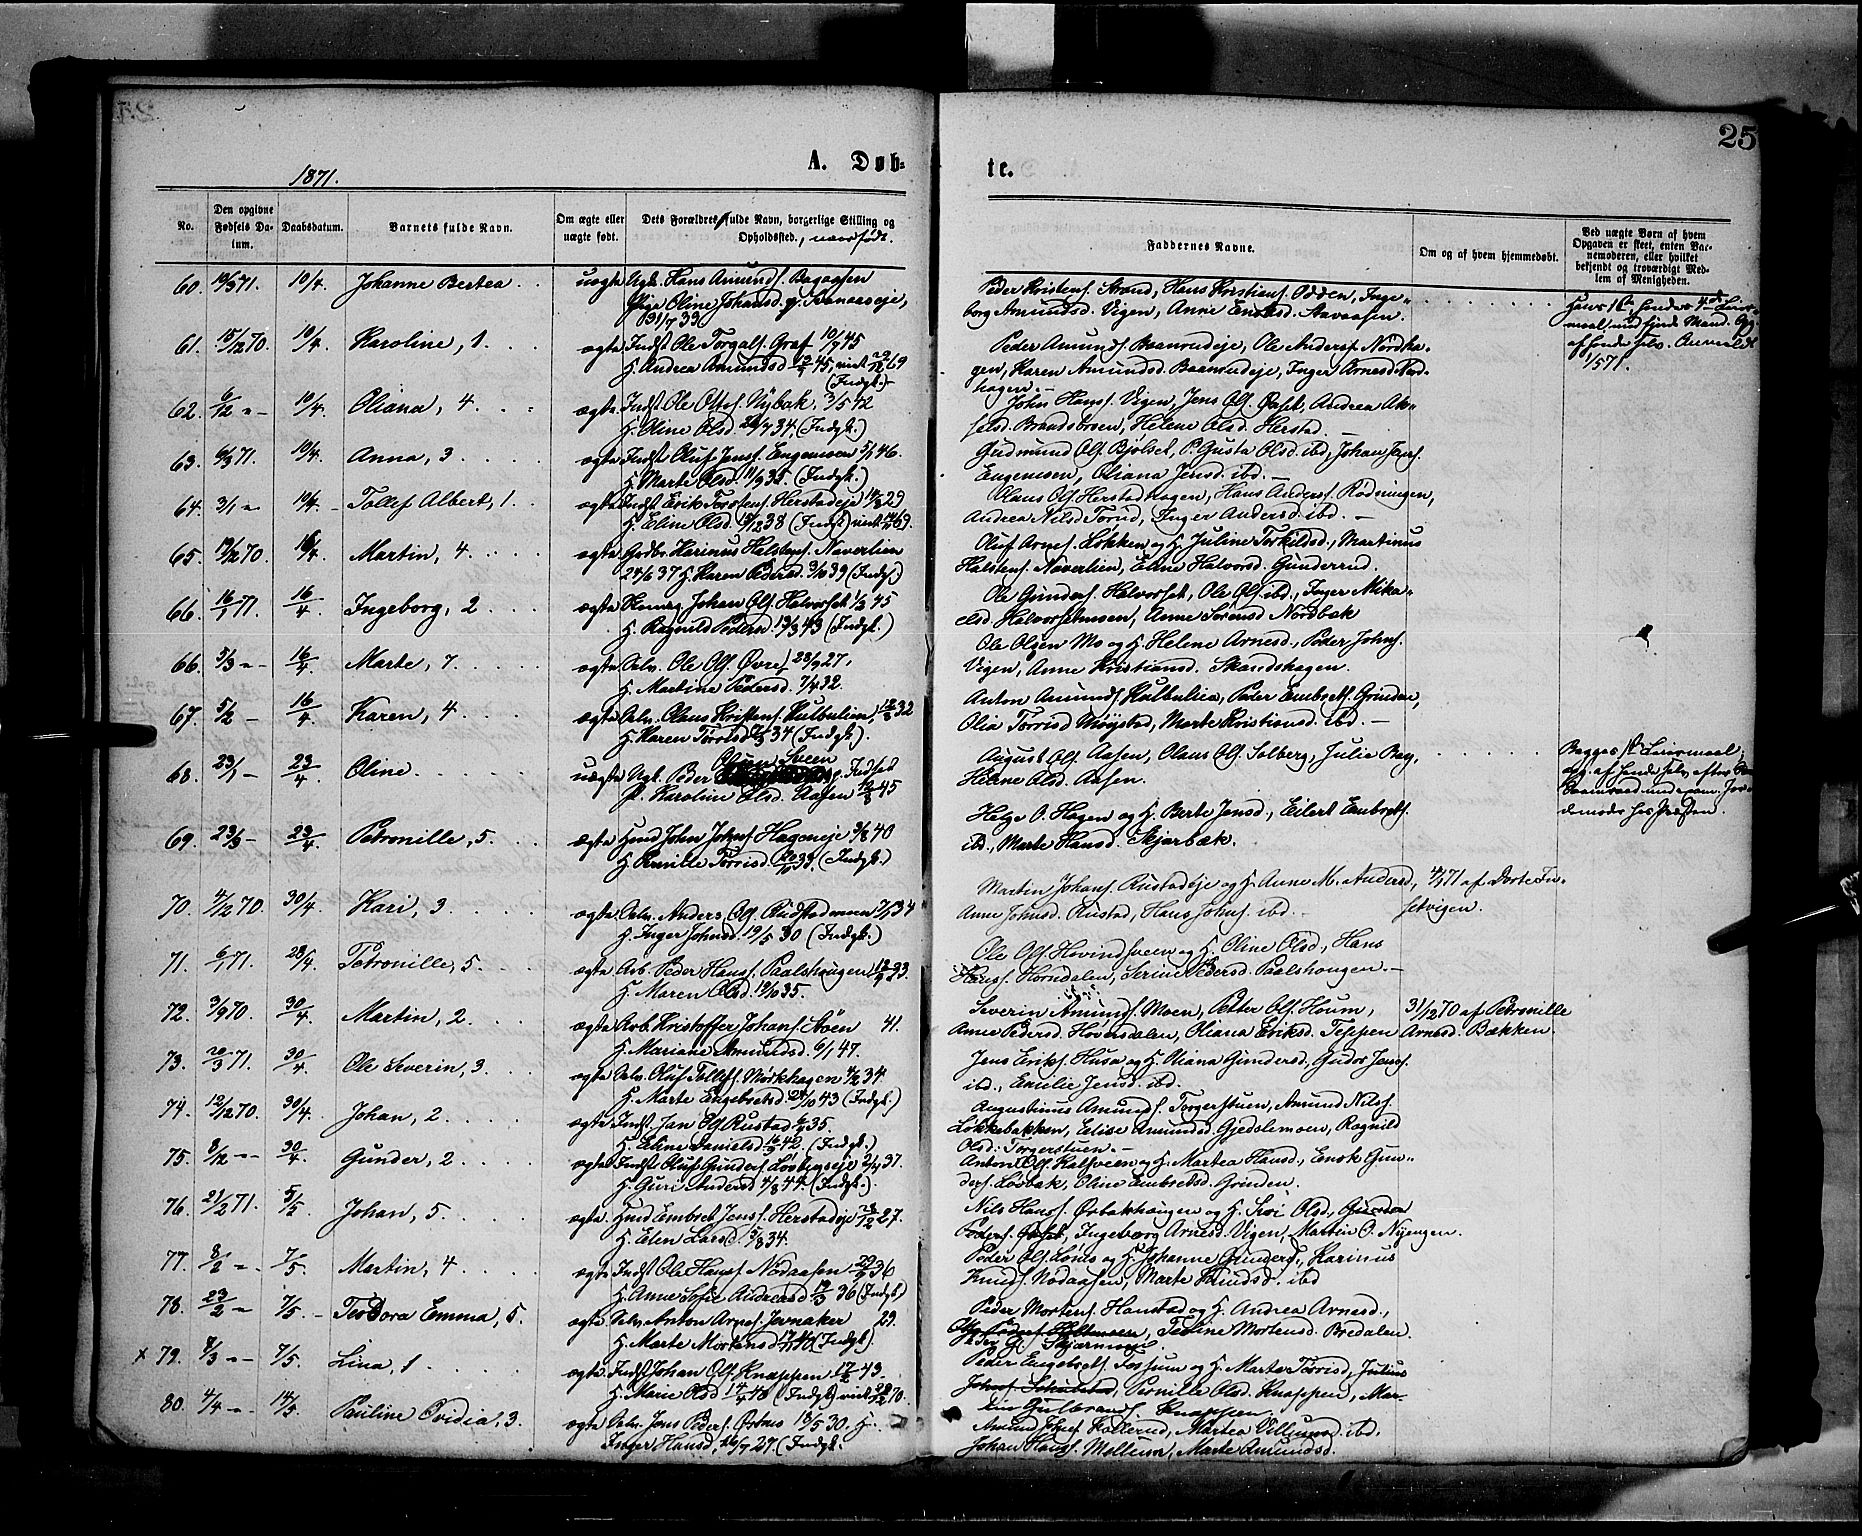 25
1871.
A. Døb-
te.
No.
Den opgivne Fødsels Da-
tum.
Daabsdatum.
Barnets fulde Navn.
Om ægte eller
uægte født.
Dets Forældres fulde Navn, borgerlige Stilling og
Opholdssted., naar født.
Faddernes Navne.
Om og af hvem hjemmedøbt.
Ved uægte Børn af hvem
Opgaven er skeet, enten Bar-
nemoderen, eller hvilket
bekjendt og troværdigt Med-
lem af Menigheden.
60. 19/3 71. 10/4. Johanne Bertea . . uægte Ugk. Hans Amunds. Bagaasen
Pige Oline Johansd.
31/7 39
Peder Kristens. Strand, Hans Kristians. Odden, Inge-
borg Amundsd. Vigen, Anne
61. 15/12 70. 10/4. Karoline, 1. ægte Indst Ole Torgals. Graf 10/9 45
H. Andrea Amundsd 12/7 45, viet 29/12 69
(Indgk.)
Peder Amunds. Baanrudeje, Ole Anders. Nordha-
gen, Karen Amundsd. Baanrudeje, Inger Arnesd Nord-
hagen.
62. 6/12 -"- 10/4. Oliana, 4. ægte Indst. Ole Ottos. Nybak, 3/5 42
H. Oline Olsd 26/7 34, (Indgk.)
Johs Hans. Vigen, Jens Ols. Opset, Andrea
Brandsbroen, Helene Olsd. Herstad.
63. 6/3 71. 10/4. Anna, 3 ægte Indst Oluf Jens. Engemoen 5/1 46.
H. Marte Olsd. 11/9 35. (Indgk.)
Gudmund Ols. Bjølset, P. Gusta Olsd. ibd, Johan Jens.
Engemoen, Oliana Jensd. ibd.
64. 3/1 -"- 10/4. Tollef Albert, 1. ægte Indst Erik Torstens. Herstadeje 19/3 29
H. Eline Olsd. 18/12 38 (Indgk)
Olaus Ols. Herstadhagen, Hans Anders. Rødningen,
Andrea Nilsd Torud, Inger Andersd. ibd.
65. 19/12 70. 16/4. Martin, 4. ægte Grdbr. Karinus Halstens. Naverlien
24/6 37 H. Karen Pedersd. 3/10 39 (Indgk)
Oluf Arnes. Løkken og H. Juline Torkildsd., Martinus
Halstens. Naverlien, Eline Halvorsd. Gunderrud.
66. 16/1 71. 16/4. Ingeborg, 2 ægte Johan Ols. Halvorset 1/3 45
H. Ragnild Pedersd. 13/3 43 (Indgk.)
Ole Gunders. Halvorset, Ole Ols. ibd., Inger Mika-
elsd. Halvorsetmoen, Anne Sørensd Nordbæk
66. 5/3 -"- 16/4. Marte, 7. ægte Selv. Ole Ols. Øvre 23/9 27,
H. Martina Pedersd. 7/4 32.
Ole Olsen Mo og H. Helene Arnesd., Peder Johns.
Vigen, Anne Kristiansd. Skandshagen.
67. 5/2 - 16/4. Karen, 4. ægte Selv. Olaus Kristens. Kulbulien, 12/3 32
H. Karen Torrisd 34 (Indgk).
Anton Amunds Kulbulien, Peder Embrets. Grinden,
Olia Torrisd Møystad, Marte Kristiansd. ibd.
68. 23/1 - 23/4. Oline uægte Ugk. Peder Olsen Sveen Indsted
P. Karoline Olsd. Aasen 12/8 45
August Ols. Aasen, Olaus Ols. Solberg, Julia Bag,
Helene Olsd. Aasen.
Begges 1te Leiermaal,
opg. af hende selv
69. 23/3 - 23/4. Petronille, 5. ægte Husmd John Johns. Hageneje 3/8 40
H. Pernille Torrisd. 20/10 33. (Indgk.)
Helge O. Hagen og H. Berte Jensd., Eilert Embrets.
ibd., Marte Hansd. Skjærbæk.
70. 4/12 70. 30/4. Kari, 3. ægte Selv. Anders Ols. Rudstadmoen 7/5 34
H. Inger Johnsd. 19/5 30 (Indgk.)
Martin Johans. Rustadeje og H. Anne M. Andersd,
Anne Johnsd. Rustad, Hans Johns. ibd.
4/1 71 af Dorte In-
setvigen.
71. 6/1 71. 23/4. Petronille, 5. ægte Arb. Peder Hans. Paalshaugen 12/9 33.
H. Maren Olsd. 19/10 35.
Ole Ols. Hovindsveen og H. Oline Olsd., Hans
Hans. Horndalen, Serine Pedersd. Paalshougen.
72. 3/9 70. 30/4. Martin, 2. ægte Arb. Kristoffer Johans. Støen 41.
H. Mariane Amundsd. 6/1 47.
Severin Amunds. Moen, Petter Ols. Houm,
Anne Pedersd. Hovensdalen, Oliana Eriksd. Teppen
31/12 70 af Petronille
Arnesd. Bækken.
73. 20/3 71. 30/4. Ole Severin, 3. ægte Selv. Oluf Tollefs. Mørkhagen 4/2 34.
H. Marte Engebretsd. 24/10 43 (Indgk.)
Jens Eriks. Husa og H. Oliana Gundersd., Gudor Jens.
ibd., Emilie Jensd. ibd.
74. 12/12 70. 30/4. Johan, 2. ægte Indst. Jan Ols. Rustad 35.
H. Eline Danielsd. 16/9 42 (Indgk.)
Augustinus Amunds. Torgerstuen, Amund Nils.
Løkkebakken, Elise Amundsd. Gjedslemoen, Ragnild
Olsd. Torgerstuen.
75. 8/12 -"- 30/4. Gunder, 2. ægte Indst Oluf Gunders. 2/4 37.
H. Guri Andersd 4/8 44. (Indgk.)
Anton Ols. Kalsveen og H. Martea Hansd.,
Løsbak, Oline Embretsd. Grinden.
76. 21/2 71. 5/5. Johan, 5. ægte Husmd Embret Jens. Herstadeje 23/12 27.
H. Elen Larsd. 5/8 34.
Nils Hans. Opbakhaugen og H. Siri Olsd.,
Ingeborg Arnesd. Vigen, Martin O. Nyengen.
77. 8/2 -"- 7/5. Martin, 4 ægte Indst Ole Hans. Nordaasen 29/9 36
H. Anne Sofie Andreasd 19/3 36 (Indgk)
Peder Ols. Lønes og H. Johanne Gundersd., Karinus
Knuds. Nordaasen, Marte Knudsd. ibd
78. 23/2 - 7/5. Teodora Emma, 5. ægte Selv. Anton Arnes. Jevnaker 29.
H. Marte Mortensd 17/11 40 (Indgk).
Peder Mortens. Hanstad og H. Andrea Arnesd.,
Teoline Mortensd. Bredalen.
x 79. 7/3 -"- 7/5. Lina, 1 ægte Indst Johan Ols. Knappen 17/2 43.
H. Marie Olsd 14/4 48 (Indgk) viet 29/12 70.
Peder Engebrets. Fossum og H. Marte Torrisd, Julius
Pernille Olsd. Knappen, Mar-
tin Gulbrands. Knappen
80. 4/4 -"- 14/5. Pauline Ovidia, 3. ægte Selv. Jens Peders. 18/5 30 H.
Inger Hansd. 26/7 27. (Indgk.
Amund Johs. Follerud, Martea Villumsd ibd.
Johan Hans. Mellem, Marte Amundsd.